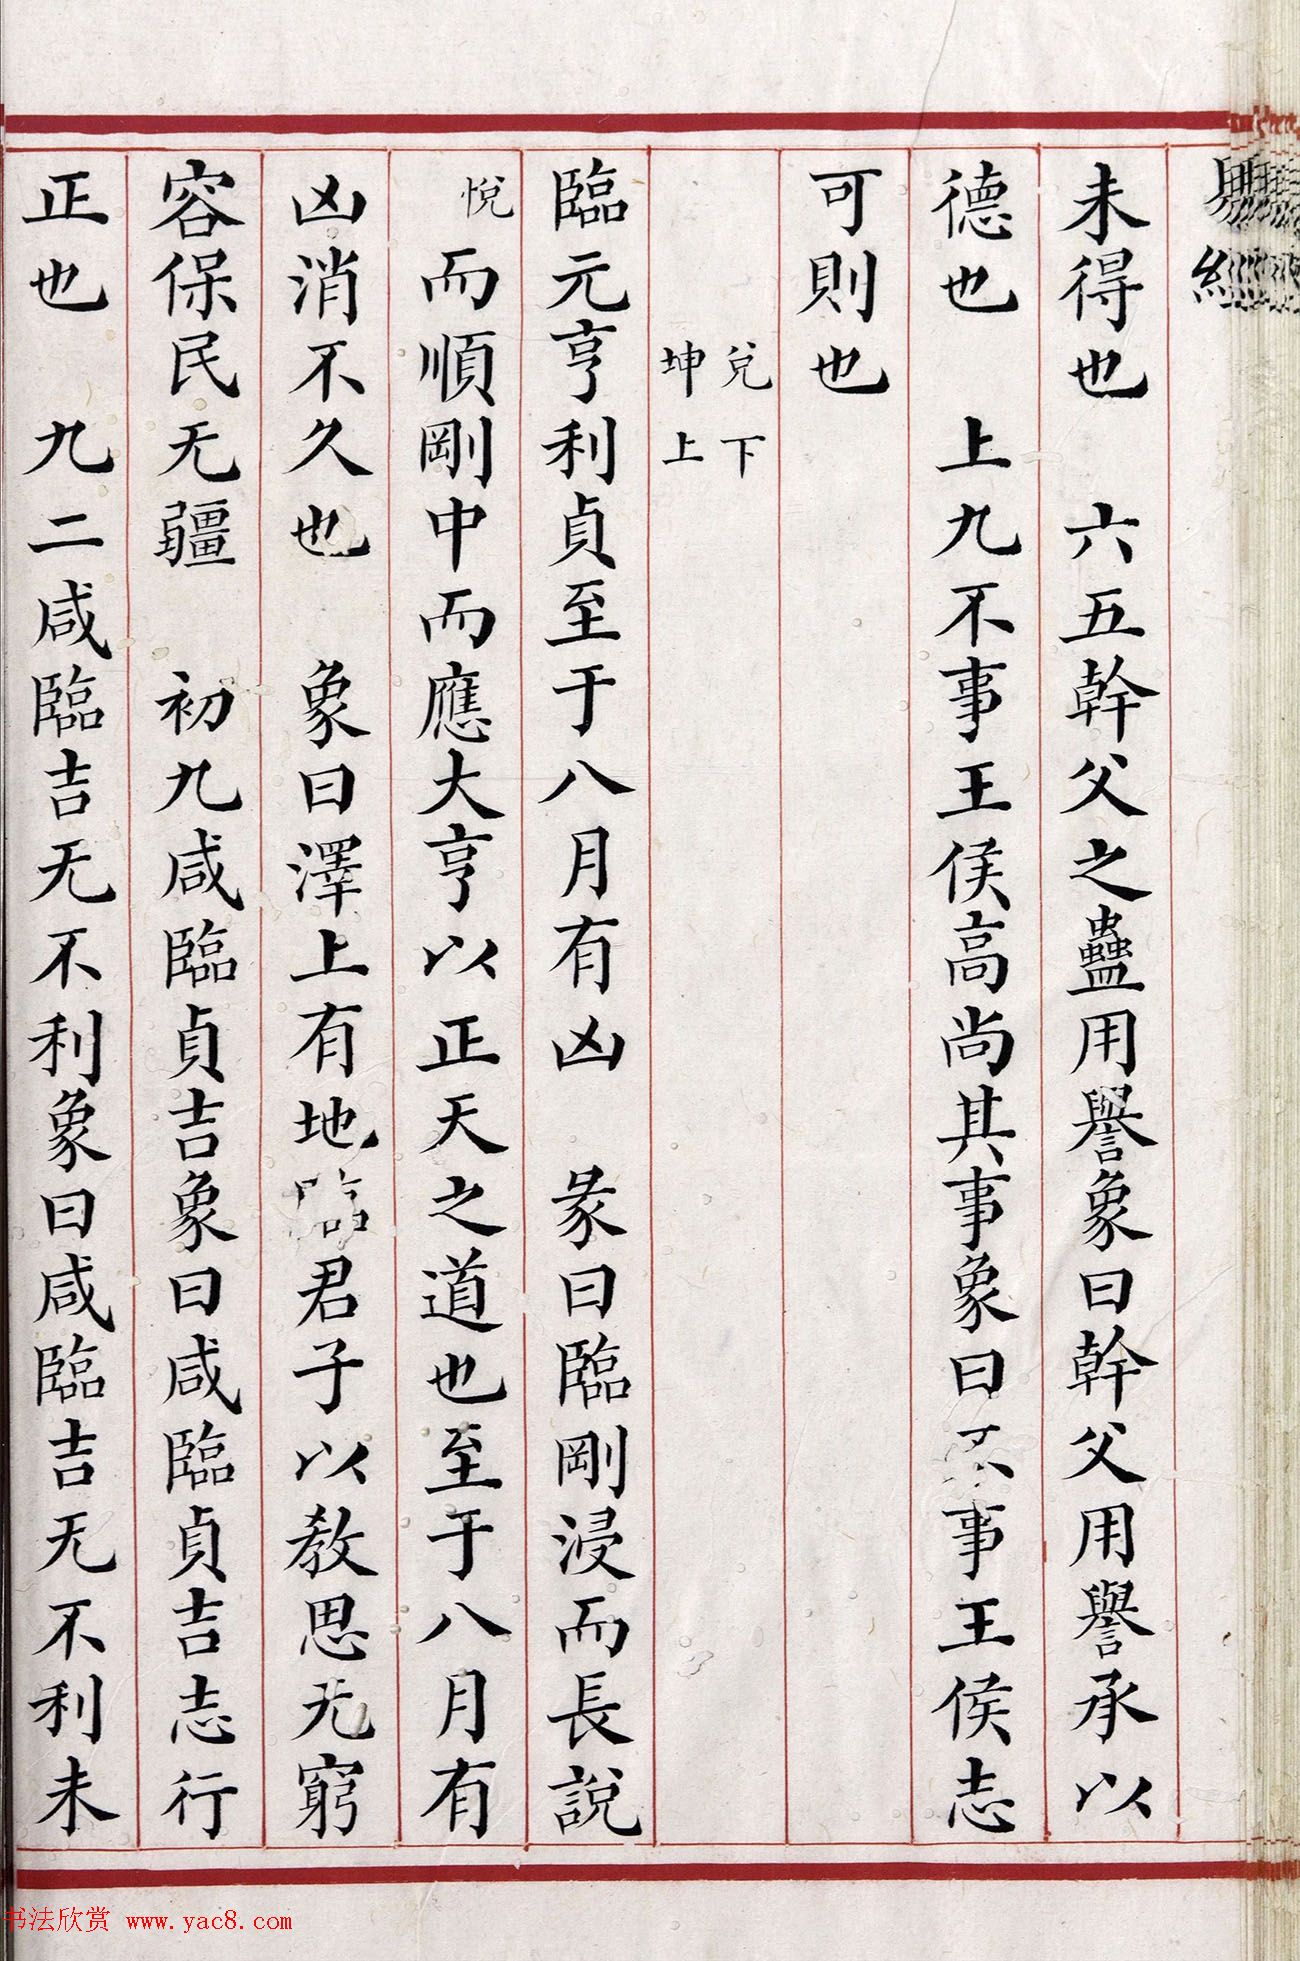 未得也　六五幹父之蠱用譽象曰幹父用譽承以
德也　上九不事王侯高尚其事象曰不事王侯志
可則也
兌下
坤上
臨元亨利貞至于八月有凶　彖曰臨剛浸而長說
悅而順剛中而應大亨以正天之道也至于八月有
凶消不久也　象曰澤上有地臨君子以教思无窮
容保民无疆　初九咸臨貞吉象曰咸臨貞吉志行
正也　九二咸臨吉无不利象曰咸臨吉无不利未
书法欣赏 www.yac8.com